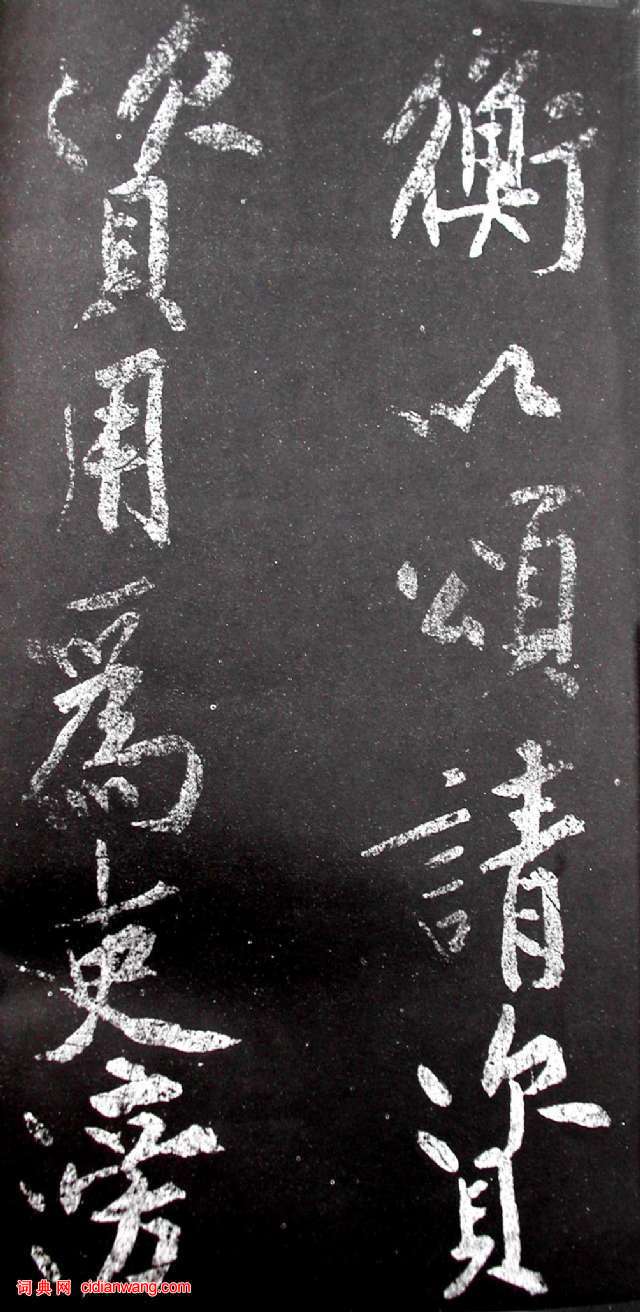 衡以頌請資
資用爲吏滂
词典网 cidianwang.com